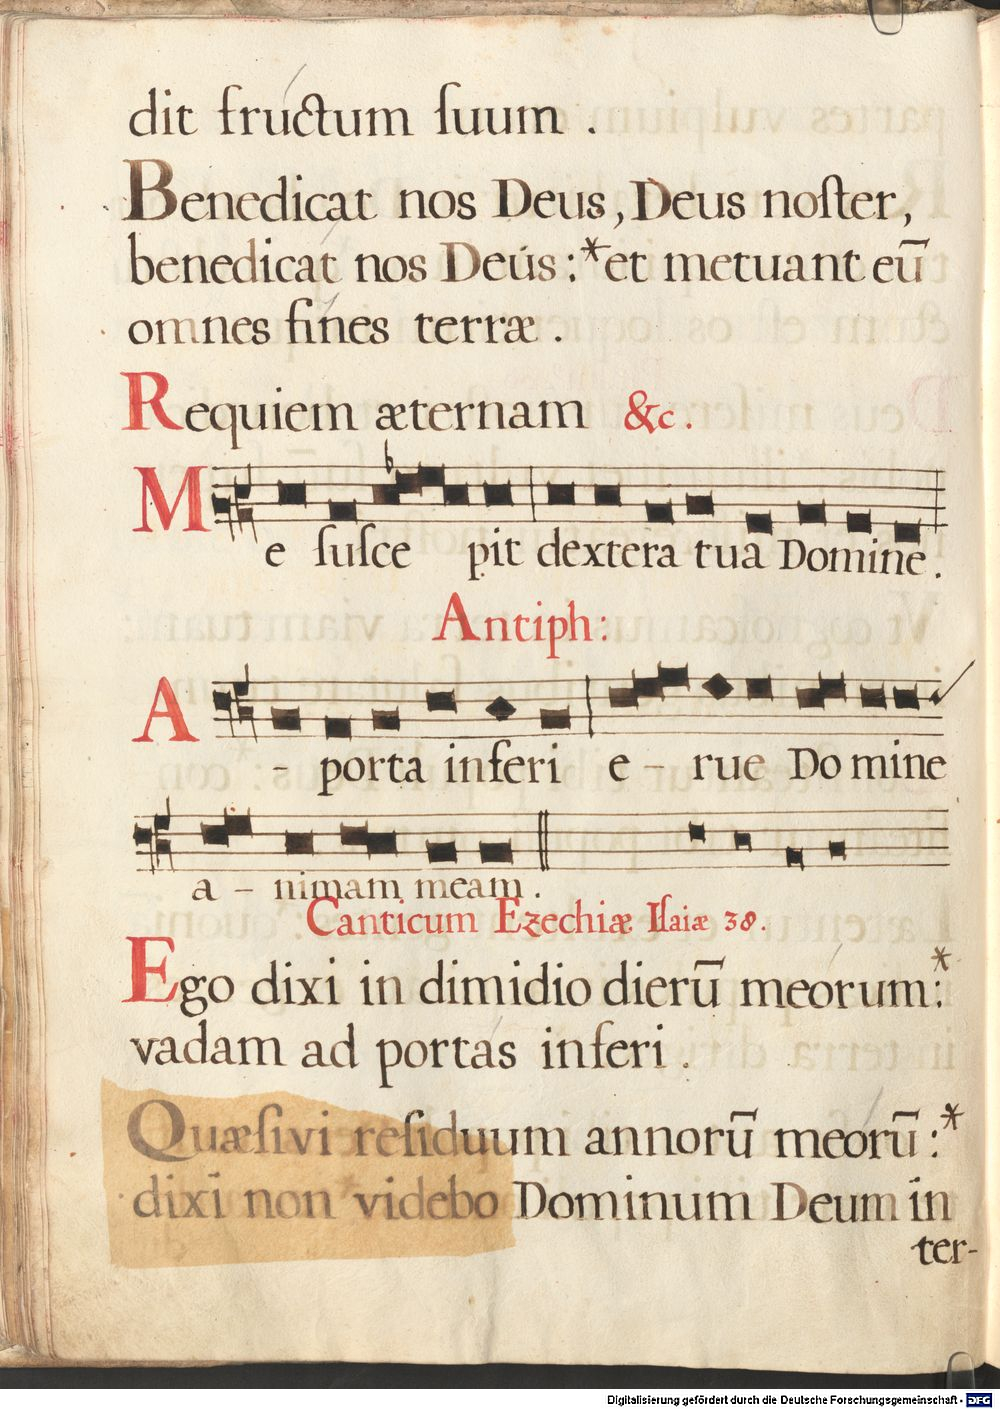 dit fructum ſuum .
Benedicat nos Deus, Deus noſter,
benedicat nos Deús :* et metuant eū
omnes fines terræ .
Requiem æternam &c .
M
e ſuſce pit dextera tua Domine .
Antiph:
A
- porta inferi e - rue Domine
a - nimam meam .
Canticum Ezechiæ Iſaiæ 38.
Ego dixi in dimidio dierū meórum :*
vadam ad portás inferi .
Quæſivi reſiduum annorū meórū :*
dixi non videbo Dominum Deum in
ter-
Digitalisierung gefördert durch die Deutsche Forschungsgemeinschaft - DFG